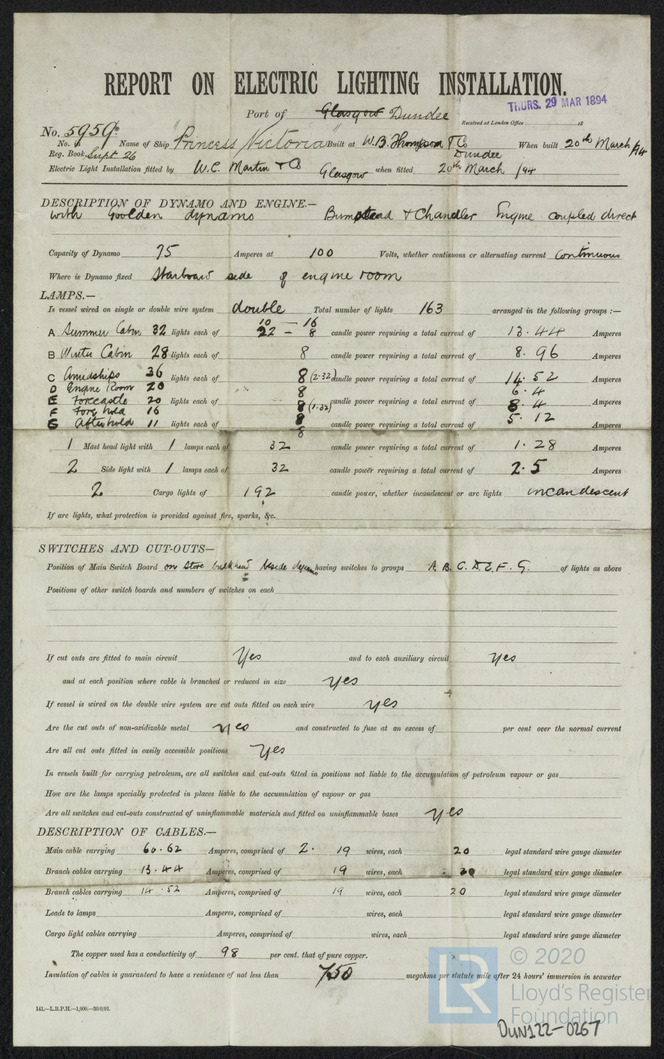 REPORT ON ELECTRIC LIGHTING INSTALLATION.
THURS. 29 MAR 1894
Port of Glasgow Dundee
Received at London Office 18
No. 5959
No. in Name of Ship "Princess Victoria" Built at W.B. Thompson & Co Dundee When built 20th March/94
Reg. Book Supt 26
Electric Light Installation fitted by W.C. Martin & Co Glasgow when fitted 20th March /94
DESCRIPTION OF DYNAMO AND ENGINE.—
with Goolden dynamo Bumstead & Chandler Engine coupled direct
Capacity of Dynamo 75 Amperes at 100 Volts, whether continuous or alternating current Continuous
Where is Dynamo fixed Starboard side of engine room
LAMPS.—
Is vessel wired on single or double wire system double Total number of lights 163 arranged in the following groups :—
10 — 16
A Summer Cabin 32 lights each of 22 — 8 candle power requiring a total current of 13.44 Amperes
B Winter Cabin 28 lights each of 8 candle power requiring a total current of 8.96 Amperes
C Amidships 36 lights each of 8 (2.32) candle power requiring a total current of 14.52 Amperes
D Engine Room 20 8 6.4
E Forecastle 20 lights each of 8 (1.32) candle power requiring a total current of 8.4 Amperes
F Fore hold 16 8 5.12
G After hold 11 lights each of 8 candle power requiring a total current of Amperes
1 Mast head light with 1 lamps each of 32 candle power requiring a total current of 1.28 Amperes
2 Side light with 1 lamps each of 32 candle power requiring a total current of 2.5 Amperes
2 Cargo lights of 192 candle power, whether incandescent or arc lights incandescent
If arc lights, what protection is provided against fire, sparks, &c.
SWITCHES AND CUT-OUTS—
Position of Main Switch Board on Store bulkhead beside dynamo having switches to groups A. B. C. D. E. F. G. of lights as above
Positions of other switch boards and numbers of switches on each
If cut outs are fitted to main circuit Yes and to each auxiliary circuit Yes
and at each position where cable is branched or reduced in size yes
If vessel is wired on the double wire system are cut outs fitted on each wire yes
Are the cut outs of non-oxidizable metal yes and constructed to fuse at an excess of per cent over the normal current
Are all cut outs fitted in easily accessible positions Yes
In vessels built for carrying petroleum, are all switches and cut-outs fitted in positions not liable to the accumulation of petroleum vapour or gas
How are the lamps specially protected in places liable to the accumulation of vapour or gas
Are all switches and cut-outs constructed of uninflammable materials and fitted on uninflammable bases yes
DESCRIPTION OF CABLES.—
Main cable carrying 60.62 Amperes, comprised of 2. 19 wires, each 20 legal standard wire gauge diameter
Branch cables carrying 13.44 Amperes, comprised of 19 wires, each 20 legal standard wire gauge diameter
Branch cables carrying 14.52 Amperes, comprised of 19 wires, each 20 legal standard wire gauge diameter
Leads to lamps Amperes, comprised of wires, each legal standard wire gauge diameter
Cargo light cables carrying Amperes, comprised of wires, each legal standard wire gauge diameter
The copper used has a conductivity of 98 per cent. that of pure copper.
Insulation of cables is guaranteed to have a resistance of not less than 750 megohms per statute mile after 24 hours' immersion in seawater
LR © 2020
Lloyd's Register
Foundation
DUN122-0267